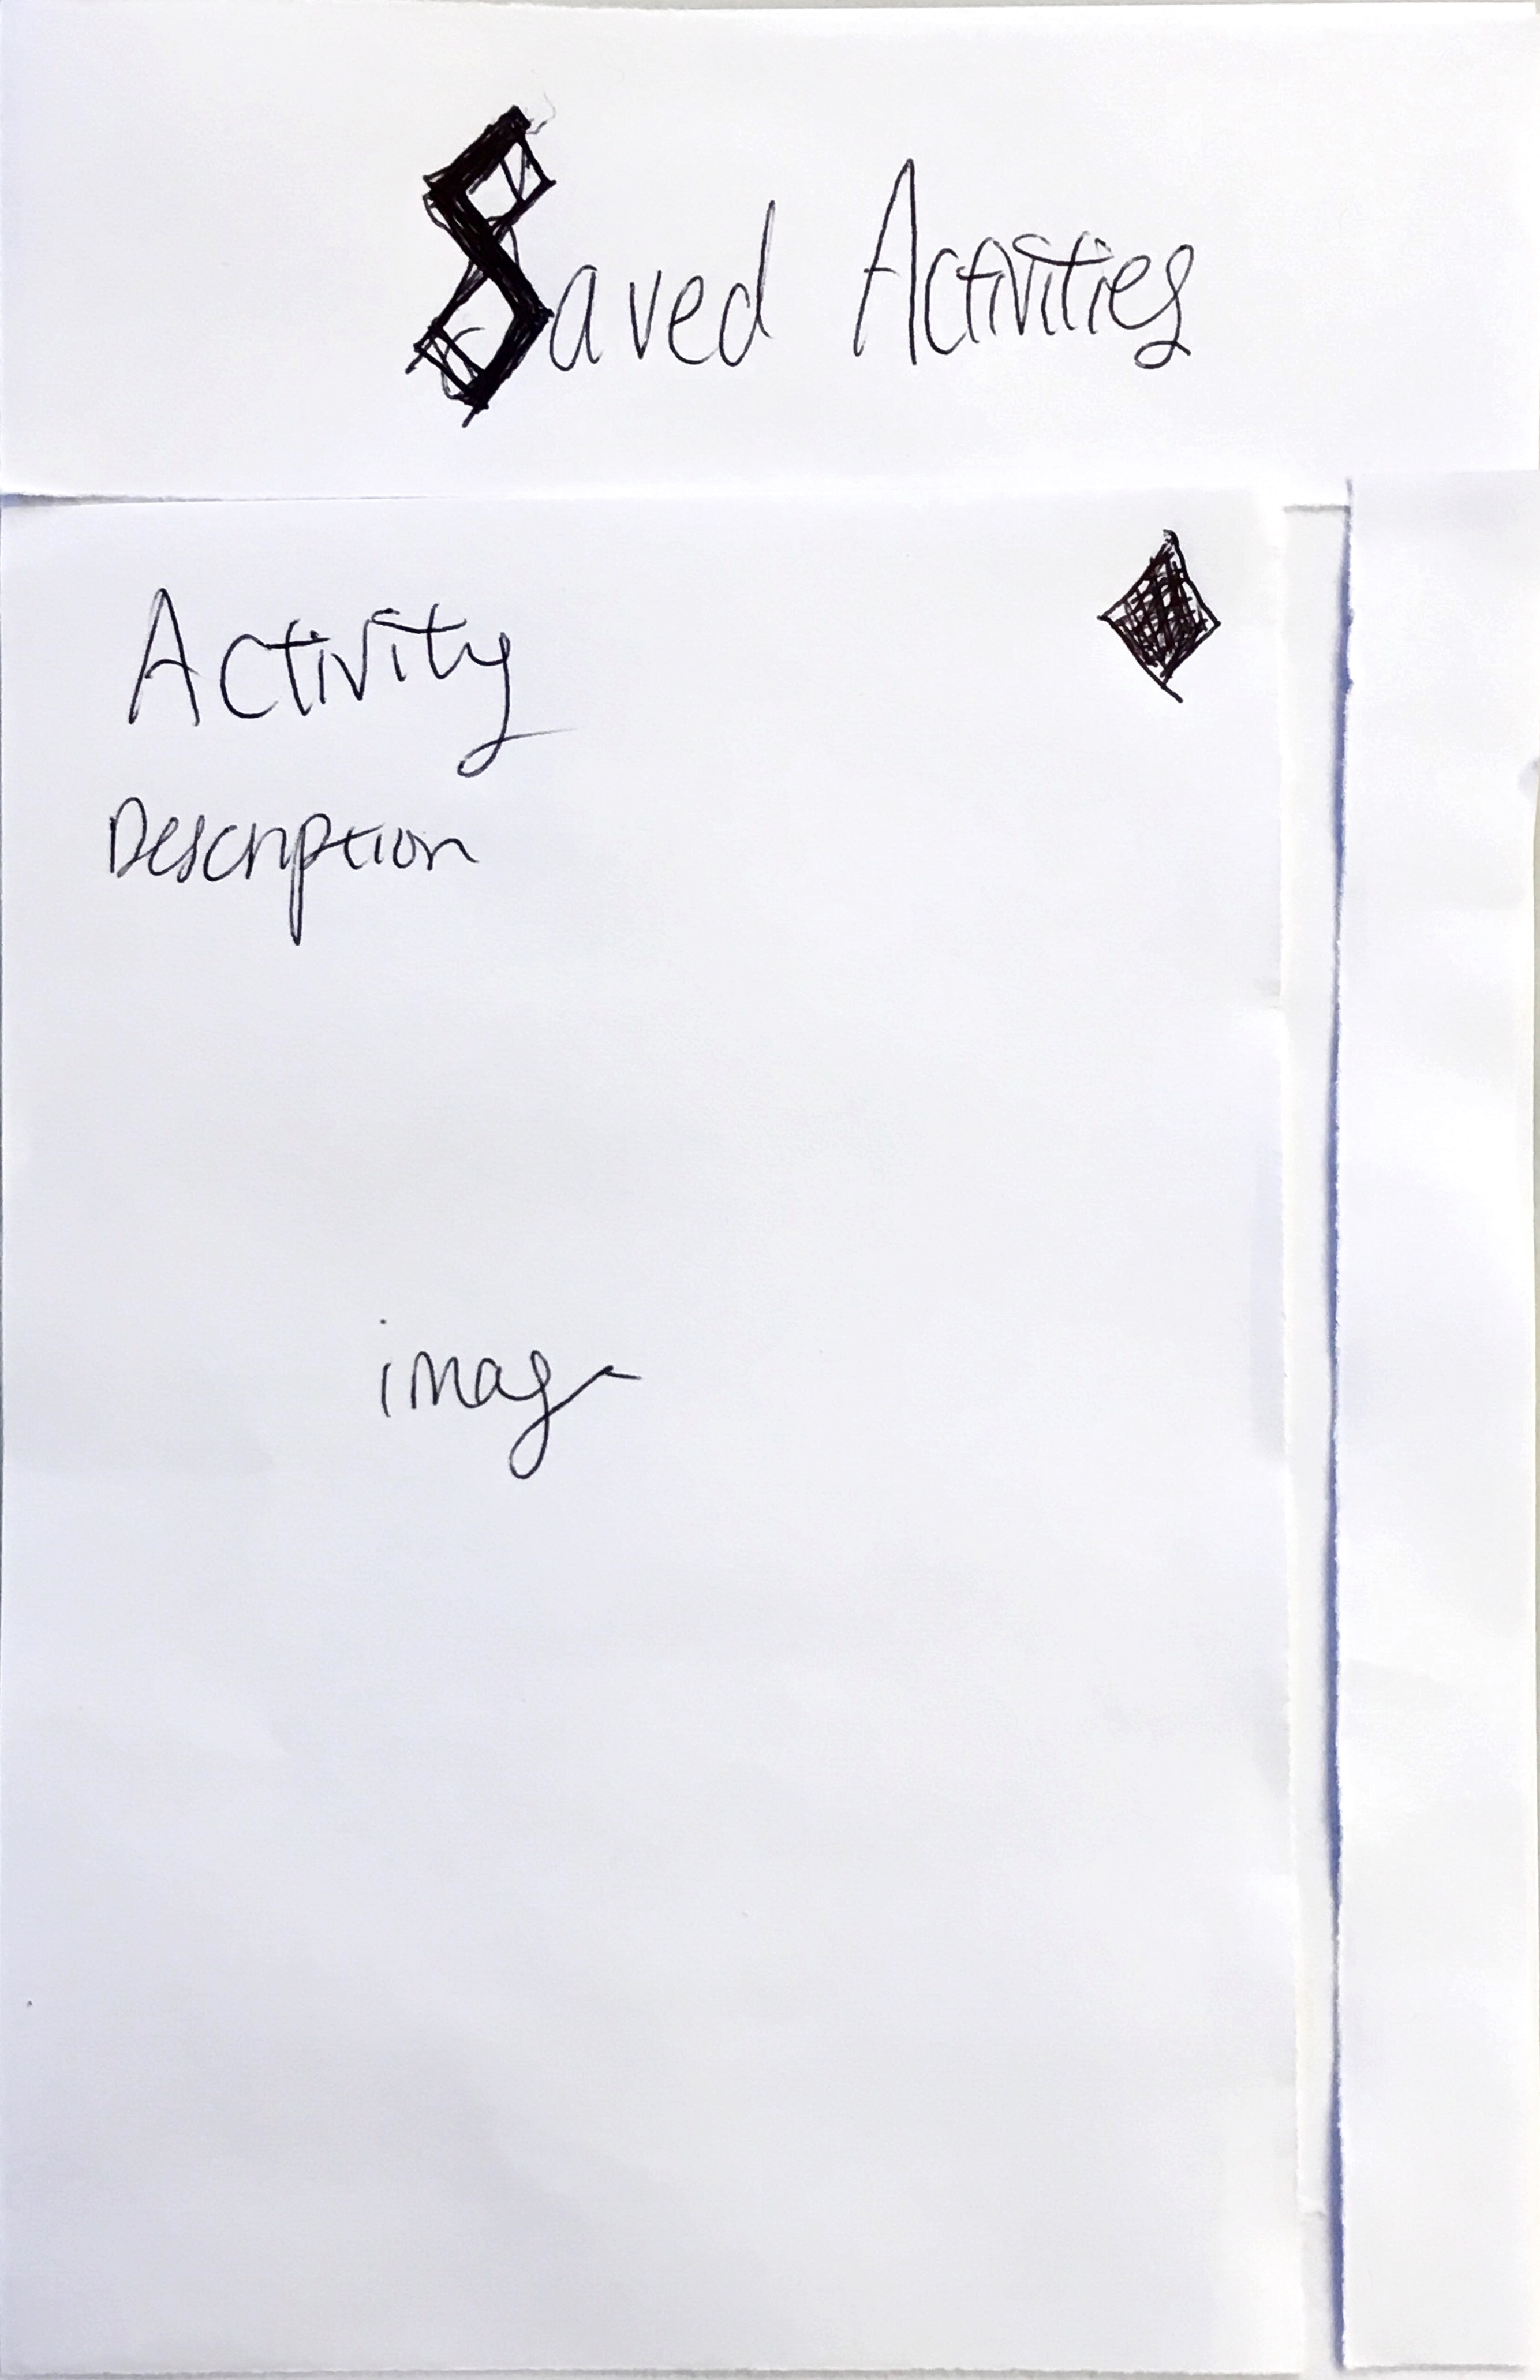 Saved Activities
Activity
Description
image